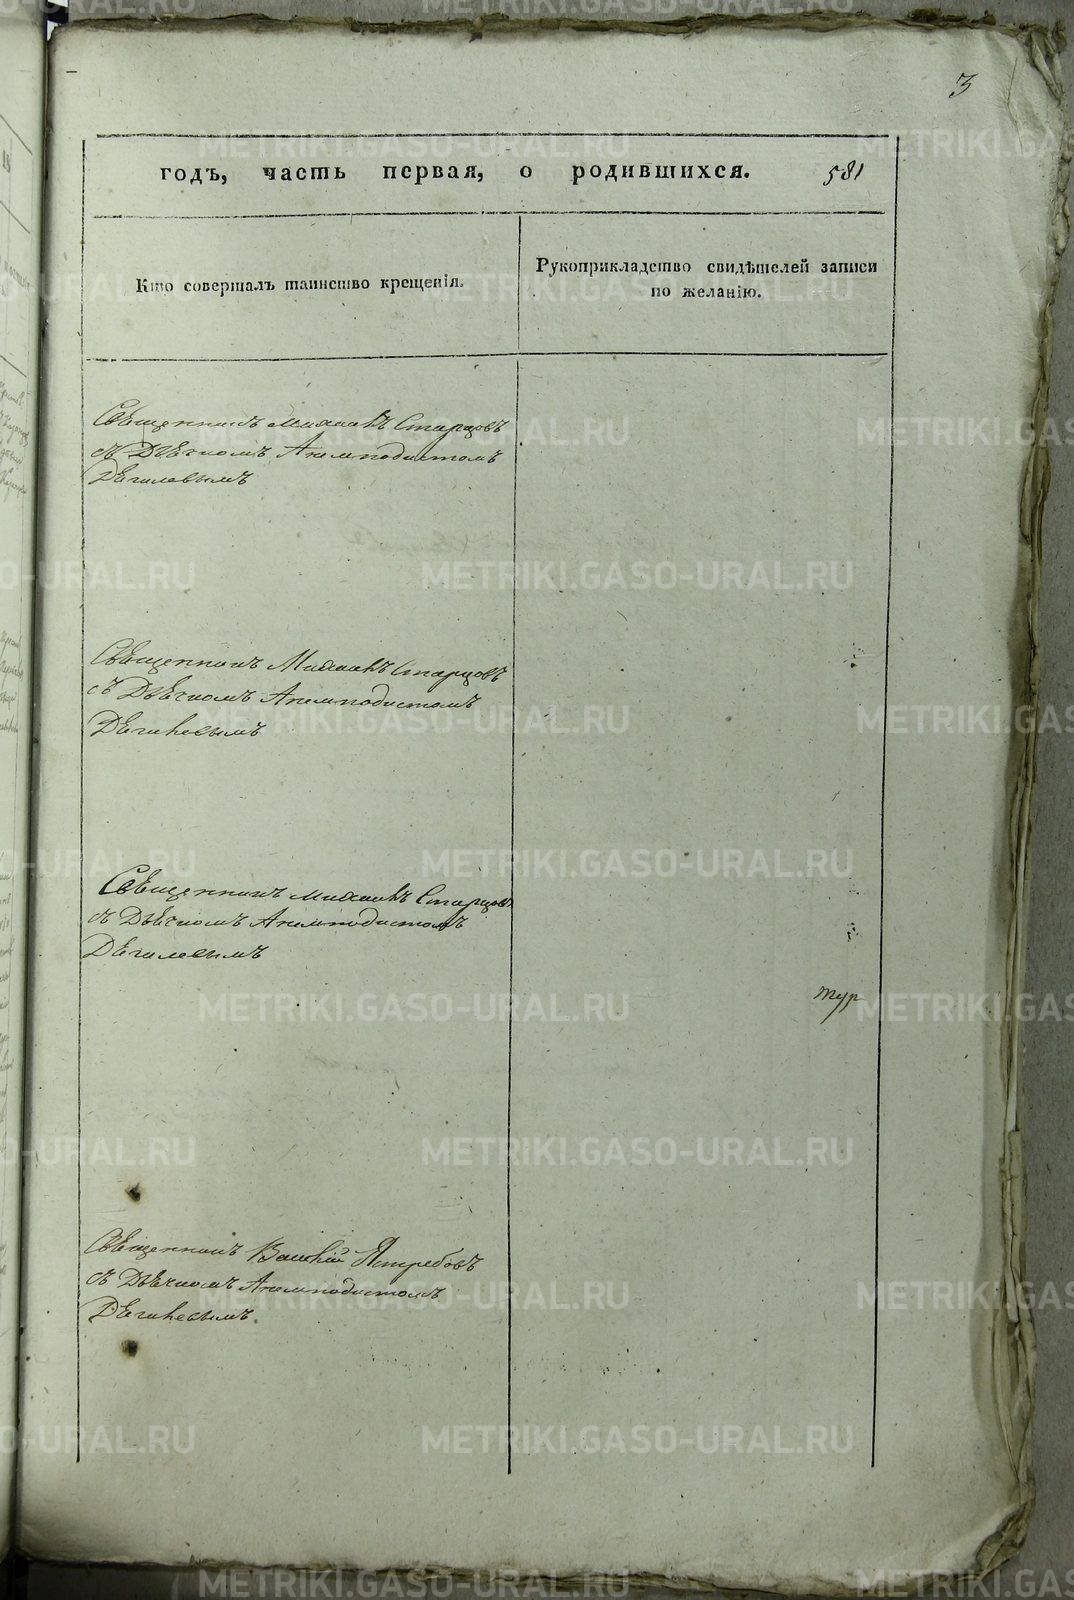 3
годъ, часть первая, о родившихся. 581
Кто совершалъ таинство крещенія.
Рукоприкладство свидѣтелей записи
по желанію.
Священникъ Михаилъ Старцовъ
съ Дьячкомъ Анемподистомъ
Дѣгилевымъ
Священникъ Михаилъ Старцовъ
съ Дьячкомъ Анемподистомъ
Дѣгилевымъ
Священникъ Михаилъ Старцовъ
съ Дьячкомъ Анемподистомъ
Дѣгилевымъ
тур
Священникъ Василій Ястребовъ
съ Дьячкомъ Анемподистомъ
Дѣгилевымъ.
METRIKI.GASO-URAL.RU